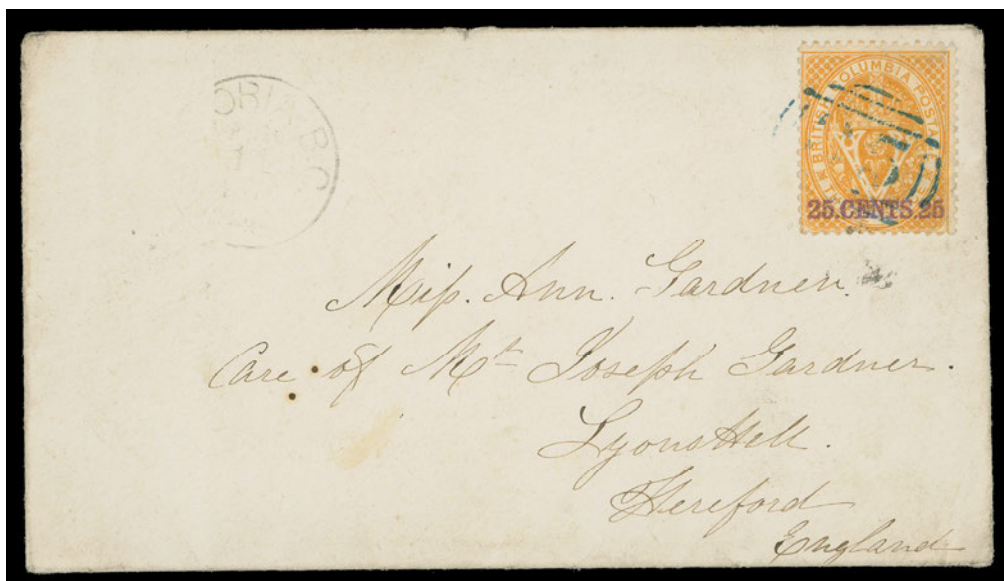 ORIA B.C
BRITISH COLUMBIA POSTA
25 CENTS 25
Miſs. Ann. Gardner.
Care of Mr Joseph Gardner.
Lyonshell.
Hereford
England